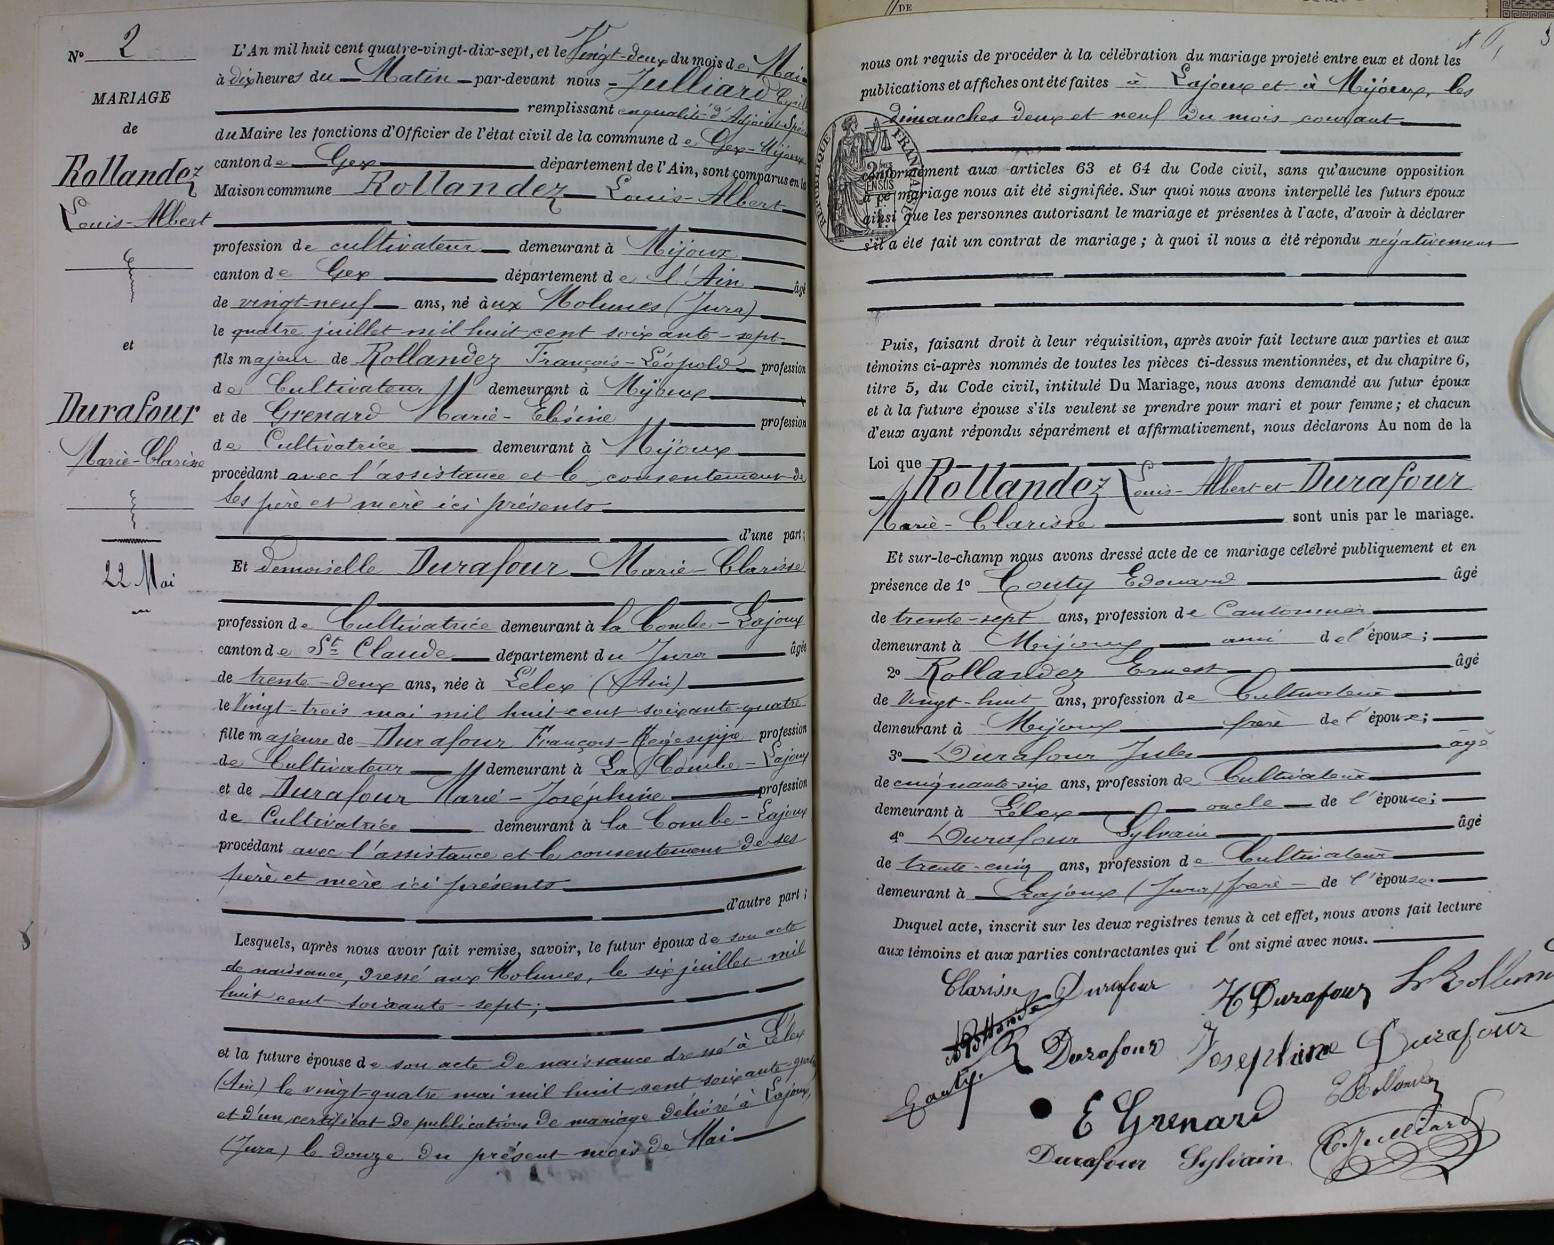 DE
N° 2
MARIAGE
de
Rollandez
Louis-Albert
et
Durafour
Marie-Clarisse
22 Mai
L'An mil huit cent quatre-vingt-dix-sept, et le Vingt-deux du mois de Mai
à dix heures du Matin par-devant nous Julliard Cyrille
remplissant en qualité d'Adjoint Spécial
du Maire les fonctions d'Officier de l'état civil de la commune de Gex-Mijoux
canton de Gex département de l'Ain, sont comparus en la
Maison commune Rollandez Louis-Albert
profession de cultivateur demeurant à Mijoux
canton de Gex département de l'Ain âgé
de vingt-neuf ans, né aux Molunes (Jura)
le quatre juillet mil huit cent soixante-sept
fils majeur de Rollandez François-Léopold profession
de Cultivateur demeurant à Mijoux
et de Grenard Marie- profession
de Cultivatrice demeurant à Mijoux
procédant avec l'assistance et le consentement de
ses père et mère ici présents
d'une part;
Et demoiselle Durafour Marie-Clarisse
profession de Cultivatrice demeurant à la Combe-Lajoux
canton de St Claude département du Jura âgée
de trente-deux ans, née à Lélex (Ain)
le Vingt-trois mai mil huit cent soixante-quatre
fille majeure de Durafour François-Hégésippe profession
de Cultivateur demeurant à La Combe-Lajoux
et de Durafour Marie-Joséphine profession
de Cultivatrice demeurant à la Combe-Lajoux
procédant avec l'assistance et le consentement de ses
père et mère ici présents
d'autre part;
Lesquels, après nous avoir fait remise, savoir, le futur époux de son acte
de naissance, dressé aux Molunes, le six juillet mil
huit cent soixante-sept;
et la future épouse de son acte de naissance dressé à Lélex
(Ain) le vingt-quatre mai mil huit-cent soixante-quatre
et d'un certificat de publications de mariage délivré à Lajoux,
(Jura) le douze du présent mois de Mai
nous ont requis de procéder à la célébration du mariage projeté entre eux et dont les
publications et affiches ont été faites à Lajoux et à Mijoux, les
dimanches deux et neuf du mois courant
RÉPUBLIQUE FRANÇAISE
conformément aux articles 63 et 64 du Code civil, sans qu'aucune opposition
à ce mariage nous ait été signifiée. Sur quoi nous avons interpellé les futurs époux
ainsi que les personnes autorisant le mariage et présentes à l'acte, d'avoir à déclarer
s'il a été fait un contrat de mariage; à quoi il nous a été répondu négativement
Puis, faisant droit à leur réquisition, après avoir fait lecture aux parties et aux
témoins ci-après nommés de toutes les pièces ci-dessus mentionnées, et du chapitre 6,
titre 5, du Code civil, intitulé Du Mariage, nous avons demandé au futur époux
et à la future épouse s'ils veulent se prendre pour mari et pour femme; et chacun
d'eux ayant répondu séparément et affirmativement, nous déclarons Au nom de la
Loi que
Rollandez Louis-Albert et Durafour
Marie-Clarisse sont unis par le mariage.
Et sur-le-champ nous avons dressé acte de ce mariage célébré publiquement et en
présence de 1° Gouty Edouard âgé
de trente-sept ans, profession de Cantonnier
demeurant à Mijoux ami de l'époux;
2° Rollandez Ernest âgé
de Vingt-huit ans, profession de Cultivateur
demeurant à Mijoux frère de l'époux;
3° Durafour Jules âgé
de cinquante-six ans, profession de Cultivateur
demeurant à Lélex oncle de l'épouse;
4° Durafour Sylvain âgé
de trente-cinq ans, profession de Cultivateur
demeurant à Lajoux (Jura) frère de l'épouse.
Duquel acte, inscrit sur les deux registres tenus à cet effet, nous avons fait lecture
aux témoins et aux parties contractantes qui l'ont signé avec nous.
Clarisse Durafour H Durafour
Durafour Joséphine Durafour
Gouty
E Grenard E Rollandez
Durafour Sylvain C. Julliard